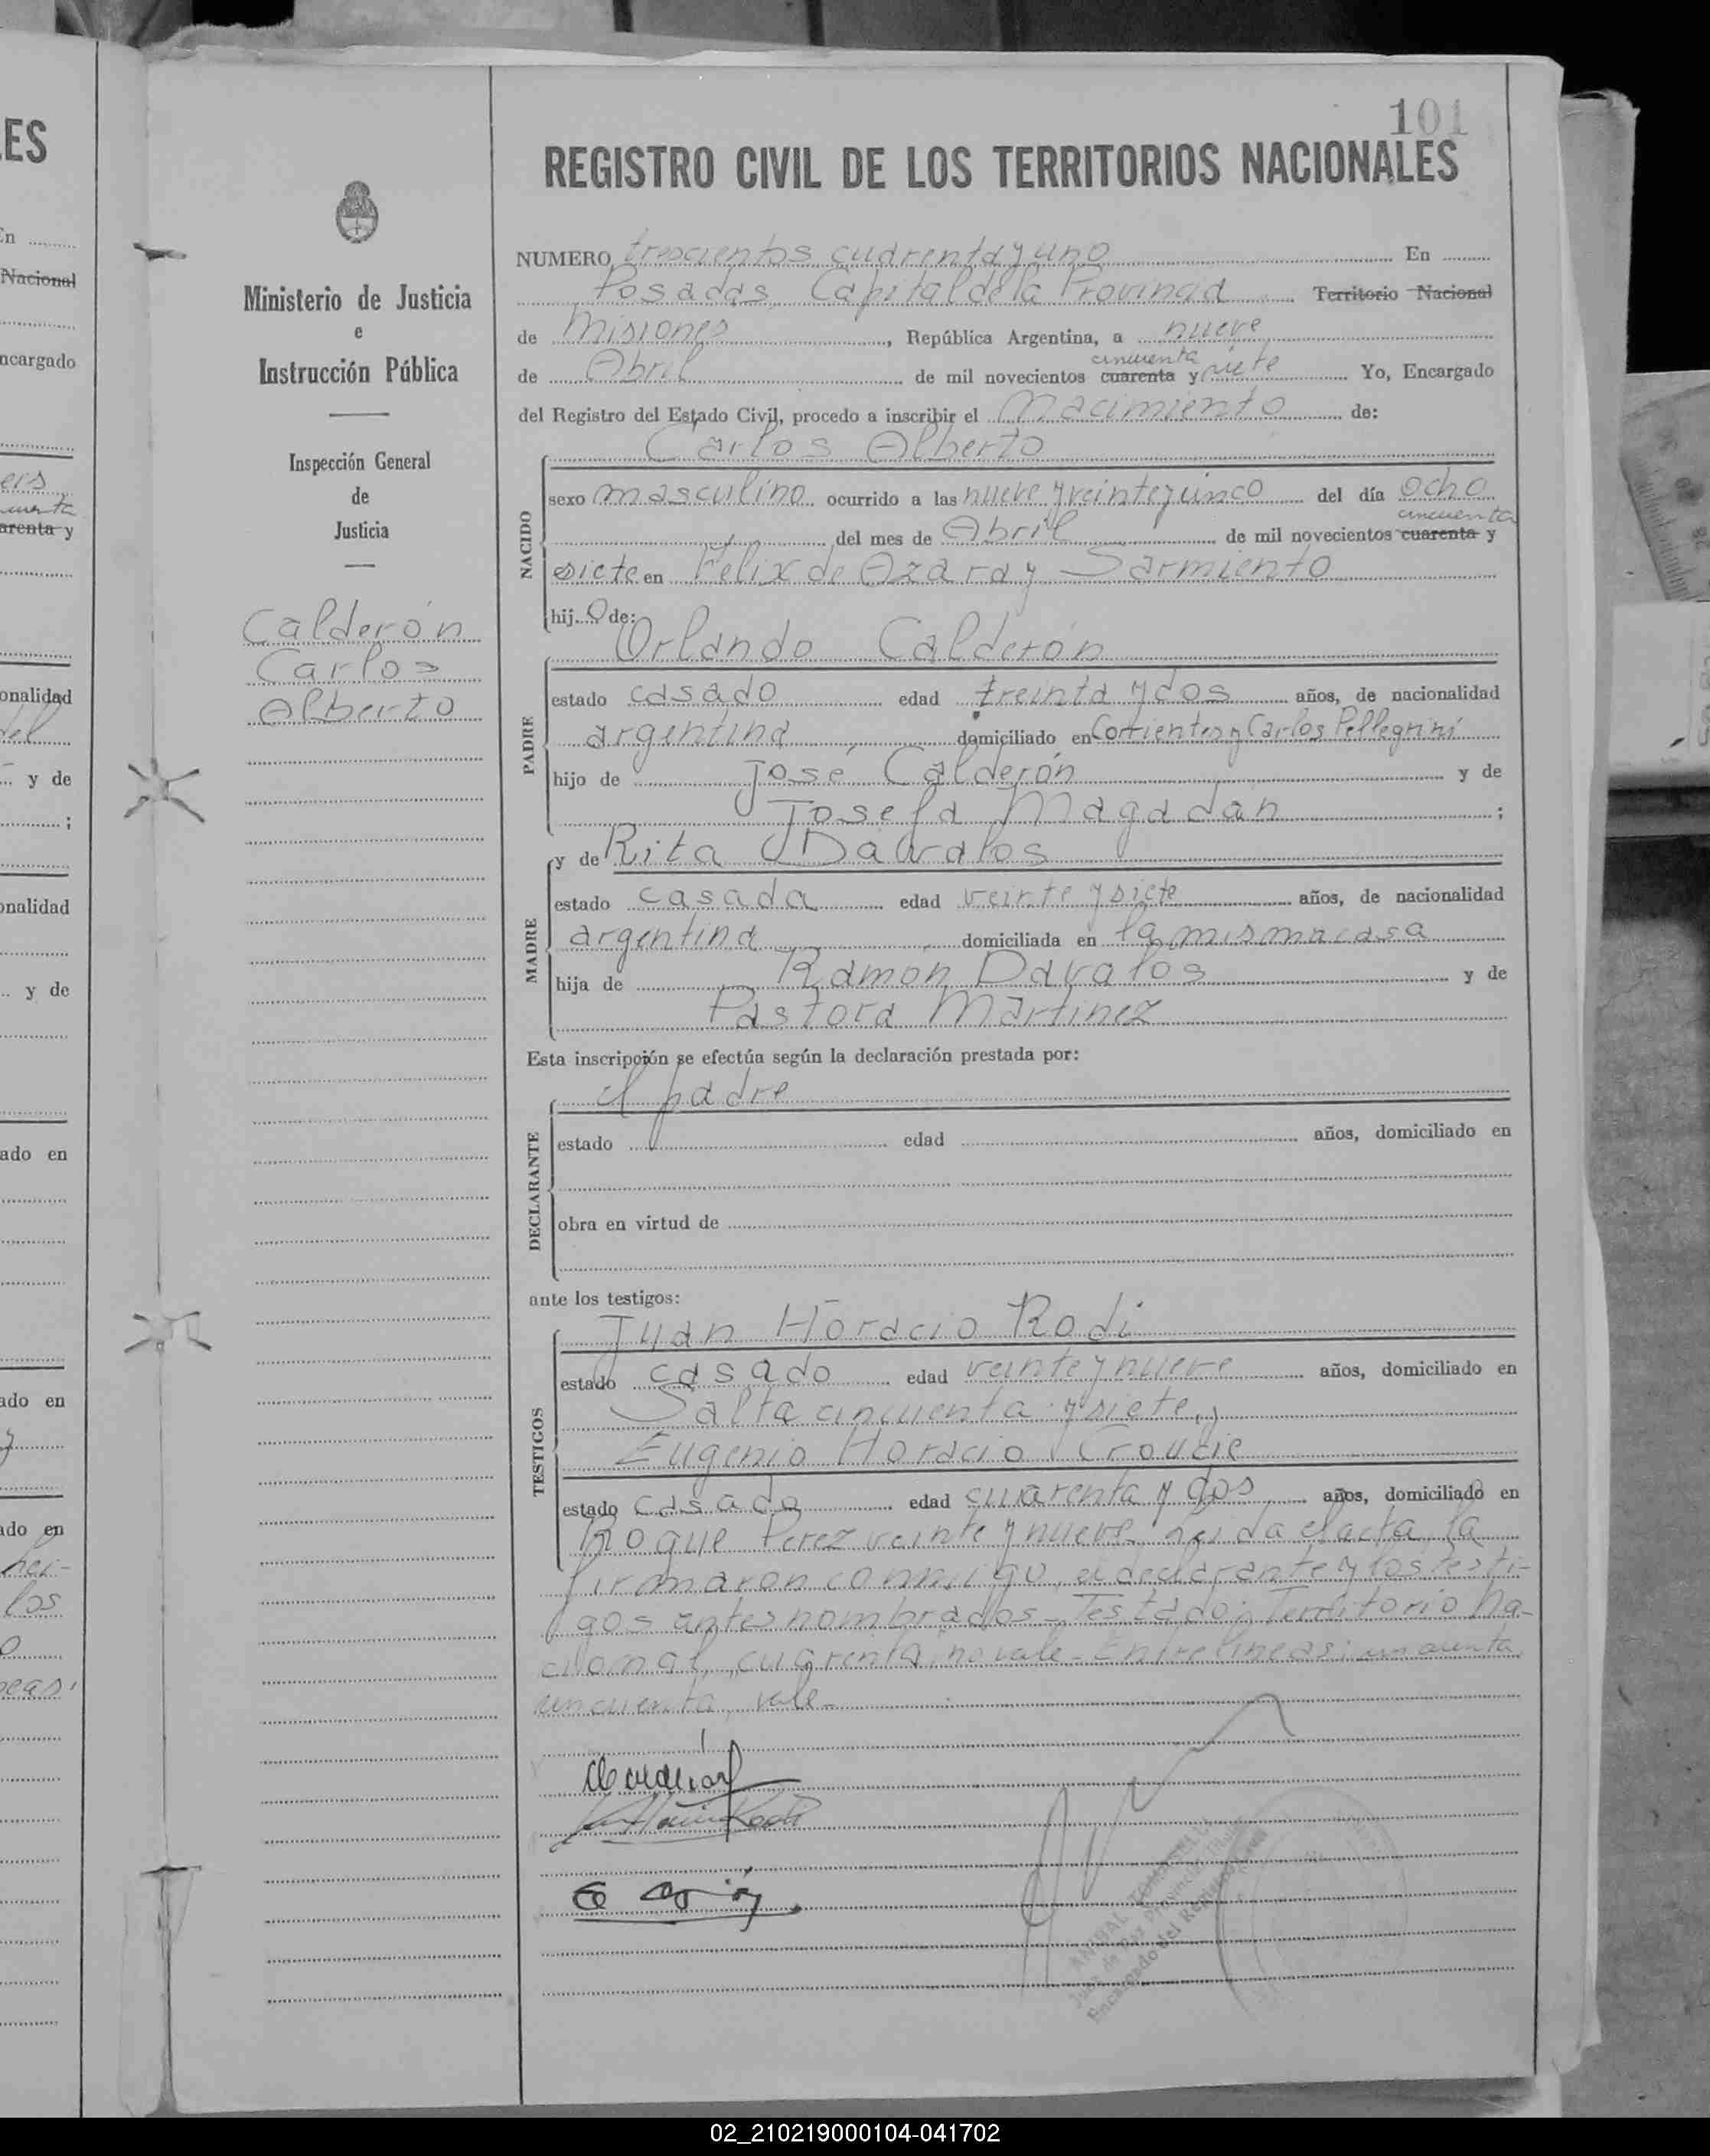 101
REGISTRO CIVIL DE LOS TERRITORIOS NACIONALES
Ministerio de Justicia
e
Instrucción Pública
Inspección General
de
Justicia
Calderón
Carlos
Alberto
NUMERO trescientos cuarenta y uno En
Posadas, Capital de la Provincia Territorio Nacional
de Misiones, República Argentina, a nueve
cincuenta
de Abril de mil novecientos cuarenta y siete Yo, Encargado
del Registro del Estado Civil, procedo a inscribir el Nacimiento de:
Carlos Alberto
NACIDO
sexo masculino ocurrido a las nueve y veinte y cinco del día ocho
cincuenta
del mes de Abril de mil novecientos cuarenta y
siete en Felix de Azara y Sarmiento
hijo de:
PADRE
Orlando Calderón
estado casado edad treinta y dos años, de nacionalidad
argentina, domiciliado en Corrientes y Carlos Pellegrini
hijo de José Calderón y de
Josefa Magadan ;
MADRE
y de Rita Davalos
estado casada edad veinte y siete años, de nacionalidad
argentina, domiciliada en la misma casa
hija de Ramón Davalos y de
Pastora Martinez
Esta inscripción se efectúa según la declaración prestada por:
DECLARANTE
el padre
estado edad años, domiciliado en
obra en virtud de
ante los testigos:
TESTIGOS
Juan Horacio Rodi
estado casado edad veinte y nueve años, domiciliado en
Salta cincuenta y siete, y
Eugenio Horacio
estado casado edad cuarenta y dos años, domiciliado en
Roque Perez veinte y nueve. Leida el acta, la
firmaron conmigo, el declarante y los testi-
gos antes nombrados - Testado: Territorio Na-
cional, cuarenta, no vale - Entre lineas: cincuenta
cincuenta, vale -
Encargado del Registro
ES
En
Nacional
ncargado
arenta y
onalidad
y de
;
onalidad
y de
ado en
ado en
ado en
los
02_210219000104-041702